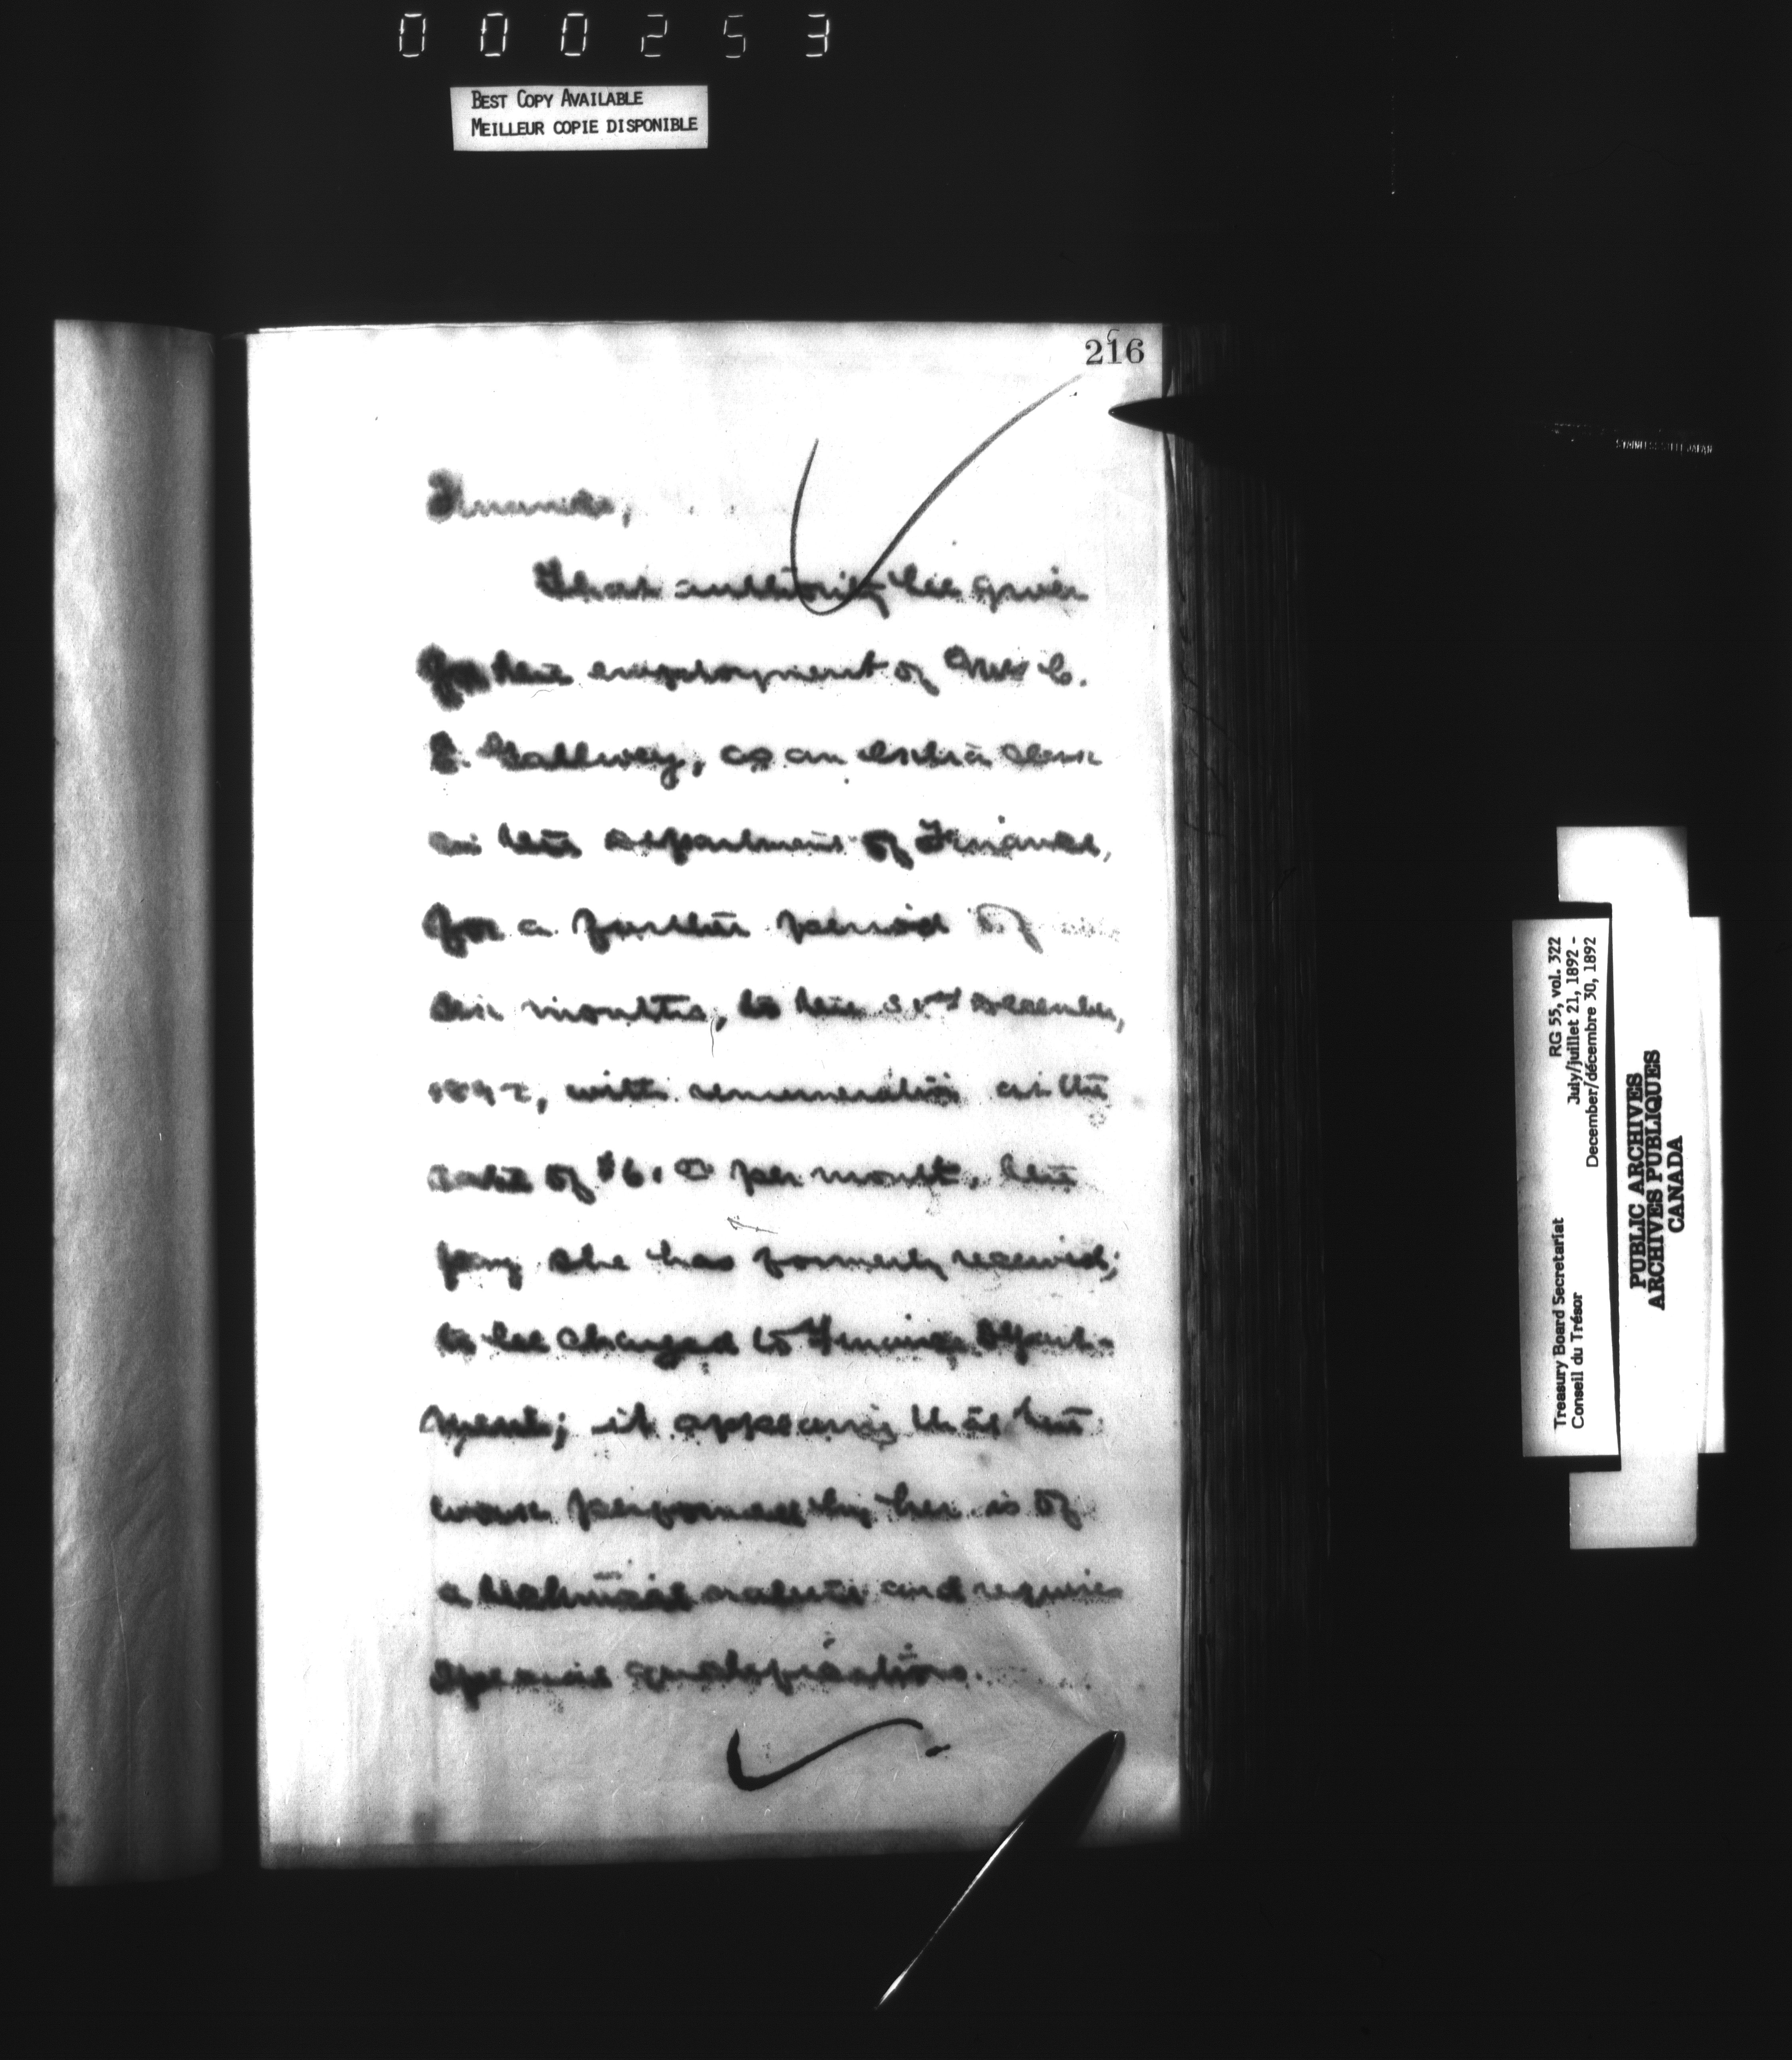 000253
BEST COPY AVAILABLE
MEILLEUR COPIE DISPONIBLE
216
Finance,
That authority be given
for the employment of C.
E. Gallwey, as an extra clerk
in the Department of Finance,
for a further period of
six months, to the 31st December,
1892, with remuneration at the
rate of per month, the
pay she has formerly received;
to be charged to Finance Depart-
ment; it appearing that the
work performed by her is of
a technical nature and requires
special qualifications.
STAINLESS STEEL JAPAN
Treasury Board Secretariat RG 55, vol. 322
Conseil du Trésor July/juillet 21, 1892 -
December/décembre 30, 1892
PUBLIC ARCHIVES
ARCHIVES PUBLIQUES
CANADA